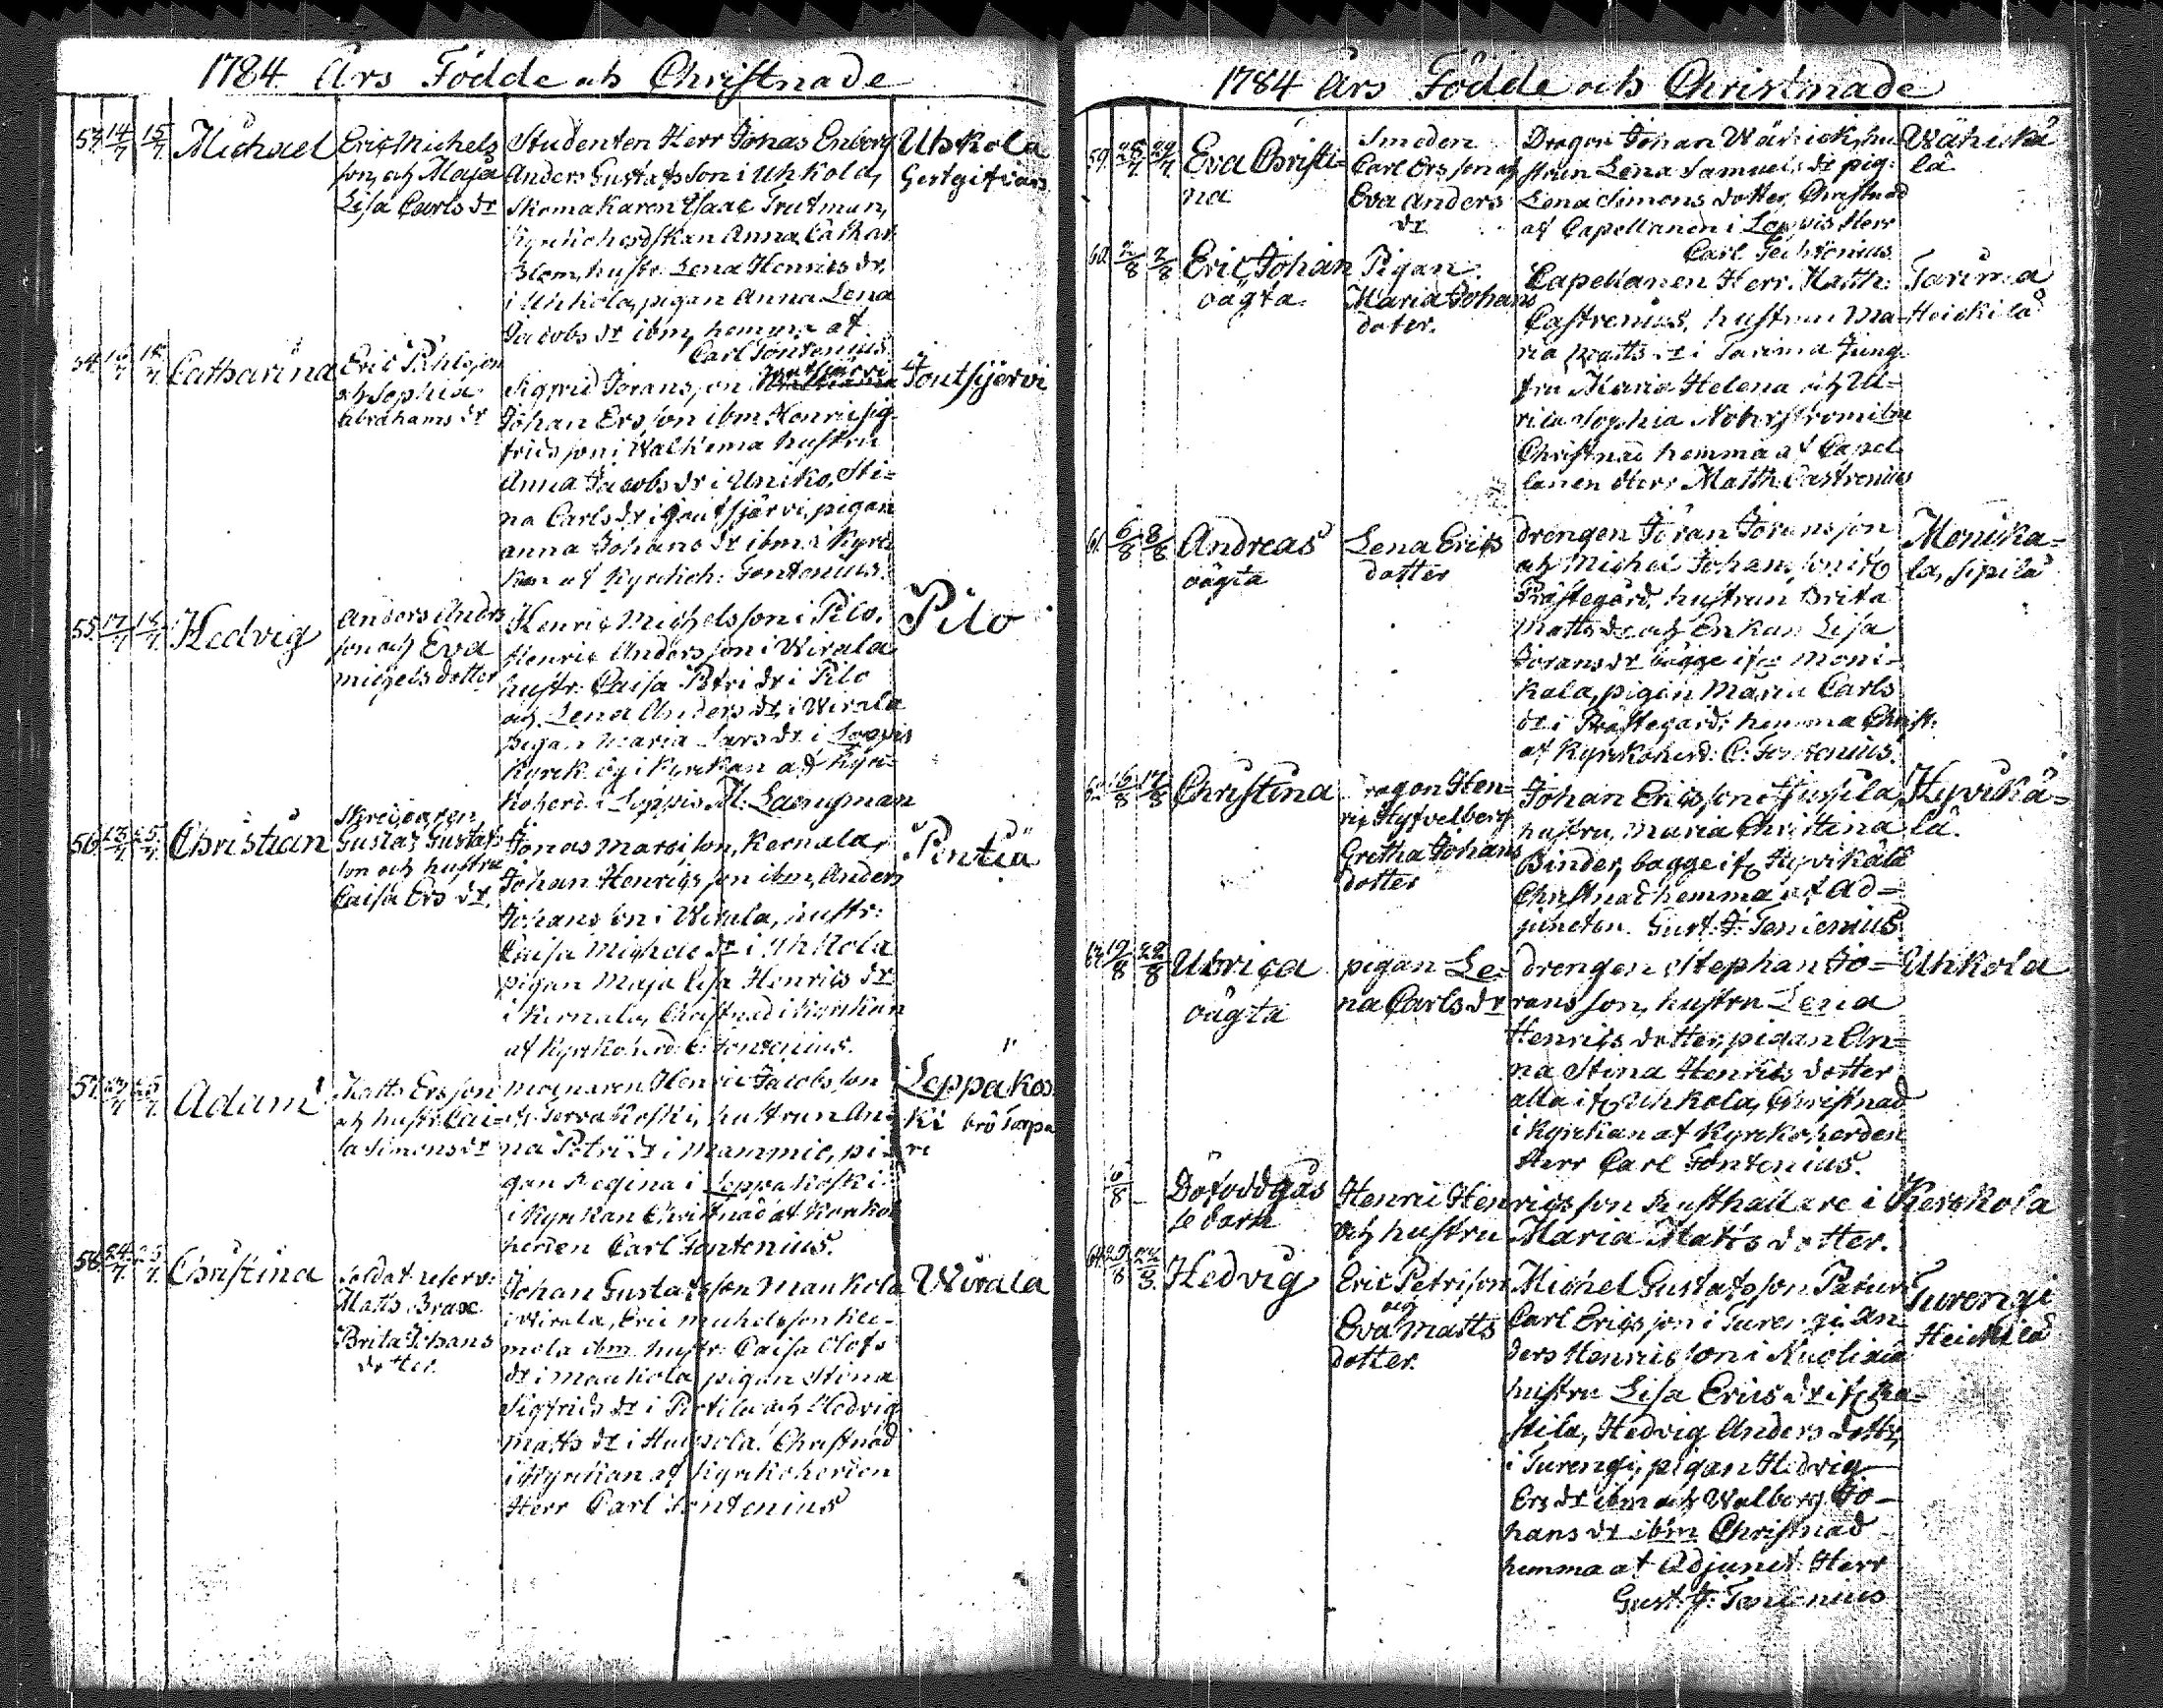 1784 Års Födde och Christnade
53. 14/7 15/7 Michael
Eric Michels
son och Maja
Lisa Carls dr
Studenten Herr Jonas Enberg
Anders Gustafsson i Uhkola,
Skomakaren Isaac Trutman,
Kyrckioherdskan Anna Cathar.
Blom, hustr. Lena Henrics dr.
i Uhkola, pigan Anna Lena
Jacobs dr ibm, hemma af
Carl Fontenius.
Uhkola
Gestgifvars
54. Catharina
Eric Påhlsson
och Sophia
Abrahams dr
Sigfrid Jöransson Joutsjärvi
Johan Ersson ibm Henric Sig-
fridsson i Walkema hustru
Anna Jacobs dr i Uniko, Sti=
na Carls dr i Joutsjärvi, pigan
anna Johans dr ibm i Kyrc
kan af Kyrckioh: Fontenius.
Joutsjervi
55. 17/7 18/7 Hedvig
Anders Anders
son och Eva
Michels dotter
Henric Michelsson i Pilo,
Henric Andersson i Wirala
hustr. Caisa Petri dr i Pilo
och Lena Anders dr i Wirala
Pigan Maria Lars dr i Loppis
Kyrck. by i Kyrckan af Kyrc-
koherd. i Loppis M: Langman
Pilo
56. 25/7 Christian
Gustaf Gustafs
son och hustru
Caisa Ers dr.
Jonas Marcison, Kernala,
Johan Henricsson ibm, Anders
Johansson i Wirala, hustr:
Caisa Michels dr i Uhkola
pigan Maja Lisa Henrics dr
i Kernala, Christnad i Kyrckan
af Kyrkoherd: C: Fontenius.
Pintiä
57. Adam
Matts Ersson
och hustr. Cai-
sa Simons dr
mölnaren Henric Jacobsson
i Tervakoski, hustrun An-
na Petri dr i Mammio, pi-
gan Regina i Leppakoski
i Kyrckan Christnad af Kyrcko
herden Carl Fontenius.
Leppakos
ki bro torpa
re
58. 24/7 25/7 Christina
Soldat reserv:
Matts Brax
Brita Johans
dotter.
Johan Gustafsson Maukola
i Wirala, Eric Michelsson
mola ibm hustr: Caisa Olofs
dr i Maukola pigan Stina
Sigfrids dr i Pertila och Hedvig
Matts dr i Christnad
i Kyrckan af Kyrckoherden
Herr Carl Fontenius
Wirala
1784 års Födde och Christnade
59. Eva Christi=
na
Smeden
Carl Ersson och
Eva Anders
dr
Dragon Johan Wähick, hu
strun Lena Samuels dr pig:
Lena Simons dotter, Christnad
af Capellanen i Loppis Herr
Carl
Wähickä
lä
60. 2/8 2/8 Eric Johan
oägta
Pigan
Maria Johans
dotter.
Capellanen Herr. Matth:
Castrenius, hustrun Ma-
ria Matts dr i Tarima Jung-
fru Maria Helena och Ul=
rica Sophia ibm
Christnad hemma af Capel-
lanen Herr Matth: Castrenius
Tarima
Heickilä
61. 6/8 8/8 Andreas
oägta
Lena Erics
dotter
drengen Jöran Jöransson
och Michel Johansson ifr
Prästegård, hustrun Brita
Matts dr och Enkan Lisa
Jörans dr bägge ifr Moni-
kala, pigan Maria Carls
dr i Prästegård: hemma Christ:
af Kyrkoherd: C: Fontenius.
Monika=
la, Sipilä
62. 16/8 17/8 Christina
Dragon Hen=
ric Hyfvelberg
Gretha Johans
dotter
Johan Ericsson i Jussila,
hustru, Maria Christina
Binder, bägge ifr Hyvikälä
Christnad hemma af Ad=
juncten. Gust: J: Tenlenius
Hyvikä=
lä.
63. 19/8 22/8 Ulrica
oägta
pigan Le-
na Carls dr
drengen Stephan Jö=
ransson, hustru Lena
Henrics dotter, pigan An=
na Stina Henrics dotter
alla ifr Uhkola, Christnad
i Kyrckan af Kyrckoherden
Herr Carl Fontenius.
Uhkola
6/8 - Dödfödd gås
se barn
Henric Henricsson Rusthållare i Kerckola
och hustru Maria Matts dotter.
64. Hedvig
Eric Petrisson
och
Eva Matts
dotter.
Michel Gustafsson
Carl Ericsson i Turengi An-
ders Henricsson i
hustru Lisa Erics dr ifr Ha-
stila, Hedvig Anders dotter,
i Turengi, pigan Hedvig
Ers dr ibm och Walborg Jo-
hans dr ibm Christnad
hemma af Adjunct. Herr
Gust: J: Tenlenius
Turengi
Heickilä